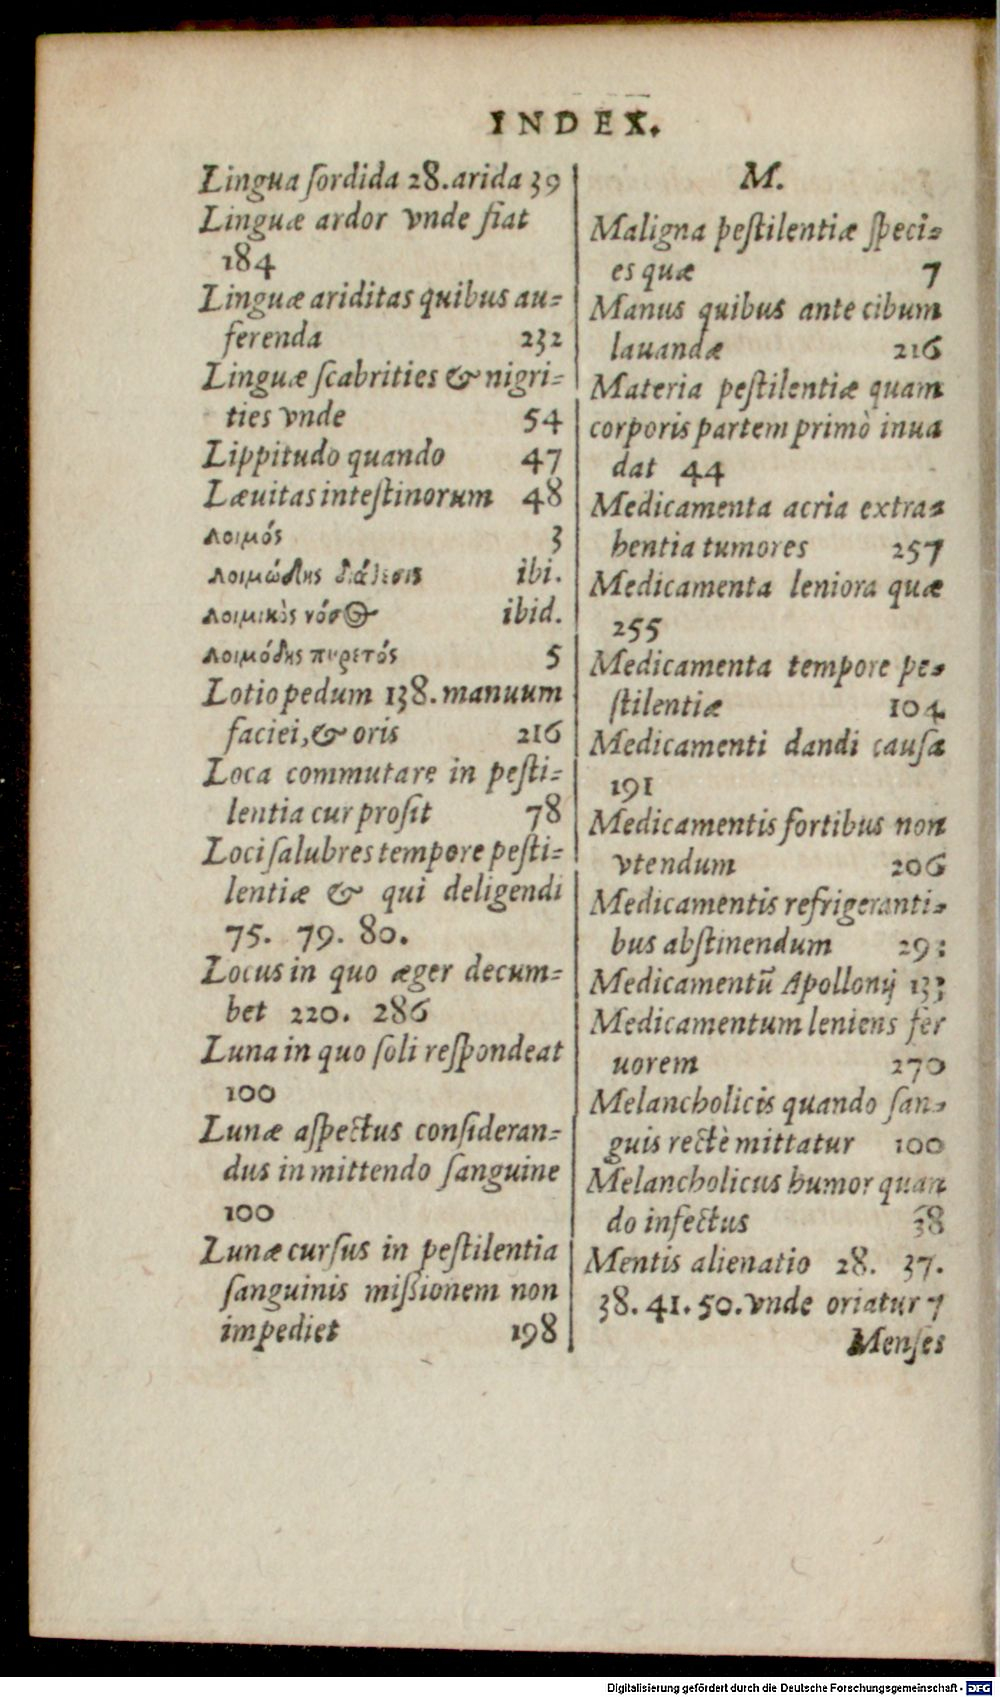 INDEX.
Lingua ſordida 28. arida 39
Linguæ ardor vnde fiat
184
Linguæ ariditas quibus au-
ferenda 232
Linguæ ſcabrities & nigri-
ties vnde 54
Lippitudo quando 47
Læuitas inteſtinorum 48
λοιμός 3
λοιμώδης διάθεσις ibi.
λοιμικὸς νόσος ibid.
λοιμόδης πυρετός 5
Lotio pedum 138. manuum
faciei, & oris 216
Loca commutare in peſti-
lentia cur proſit 78
Loci ſalubres tempore peſti-
lentiæ & qui deligendi
75. 79. 80.
Locus in quo æger decum-
bet 220. 286
Luna in quo ſoli reſpondeat
100
Lunæ aſpectus conſideran-
dus in mittendo ſanguine
100
Lunæ curſus in peſtilentia
ſanguinis miſsionem non
impediet 198
M.
Maligna peſtilentiæ ſpeci-
es quæ 7
Manus quibus ante cibum
lauandæ 216
Materia peſtilentiæ quam
corporis partem primò inua
dat 44
Medicamenta acria extra-
hentia tumores 257
Medicamenta leniora quæ
255
Medicamenta tempore pe-
ſtilentiæ 104
Medicamenti dandi cauſa
191
Medicamentis fortibus non
vtendum 206
Medicamentis refrigeranti-
bus abſtinendum
Medicamentũ Apollonij 133
Medicamentum leniens fer
uorem 270
Melancholicis quando ſan-
guis rectè mittatur 100
Melancholicus humor quan
do infectus 38
Mentis alienatio 28. 37.
38. 41. 50. vnde oriatur 7
Menſes
Digitalisierung gefördert durch die Deutsche Forschungsgemeinschaft - DFG